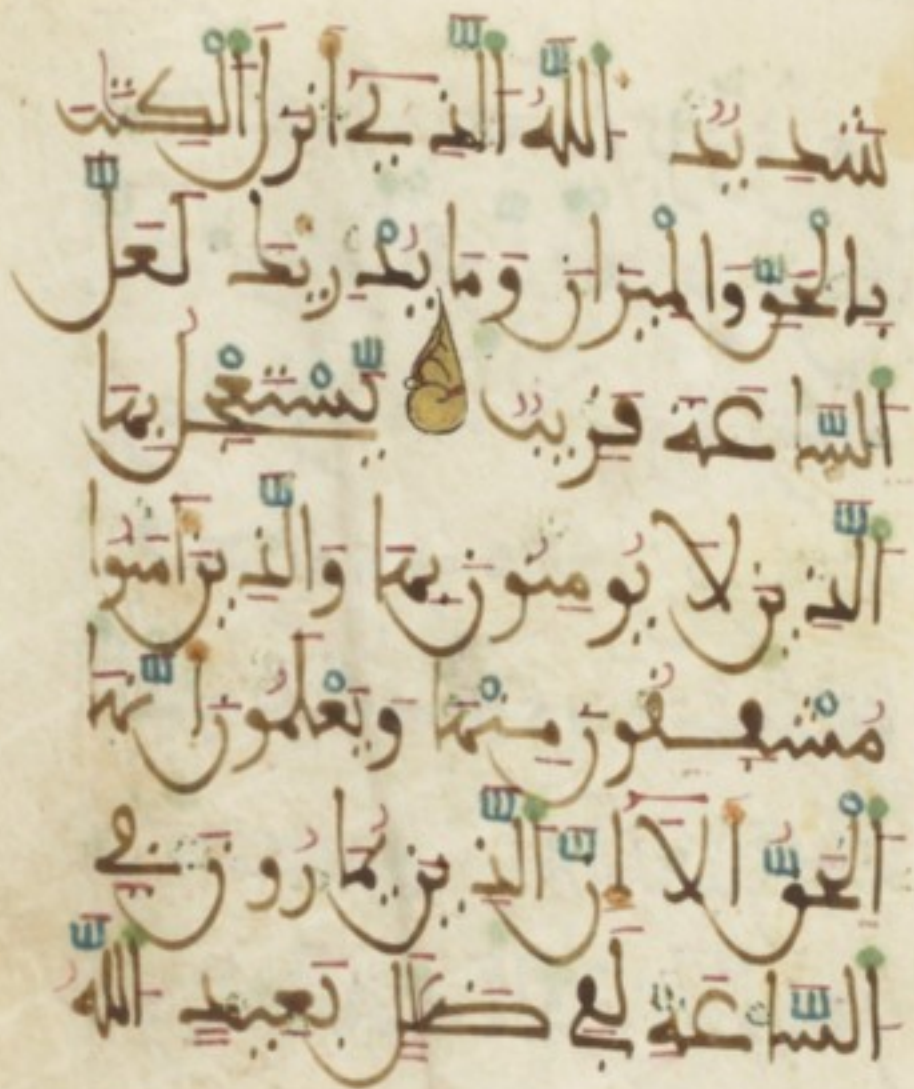 شَدِيدٌ اَللَّهُ اَلذِےٓ أَنزَلَ اَلْكِتَٰبَ
بِالْحَقِّ وَالْمِيزَانَ وَمَا يُدْرِيكَ لَعَلَّ
اَلسَّاعَةَ قَرِيبٌ يَسْتَعْجِلُ بِهَا
اَلذِينَ لَا يُومِنُونَ بِهَا وَالذِينَ ءَامَنُوا
مُشْفِقُونَ مِنْهَا وَيَعْلَمُونَ أَنَّهَا
اَلْحَقُّ أَلَآ إِنَّ اَلذِينَ يُمَارُونَ فِے
اَلسَّاعَةِ لَفِے ضَلَٰلٍ بَعِيدٍ اَللَّهُ